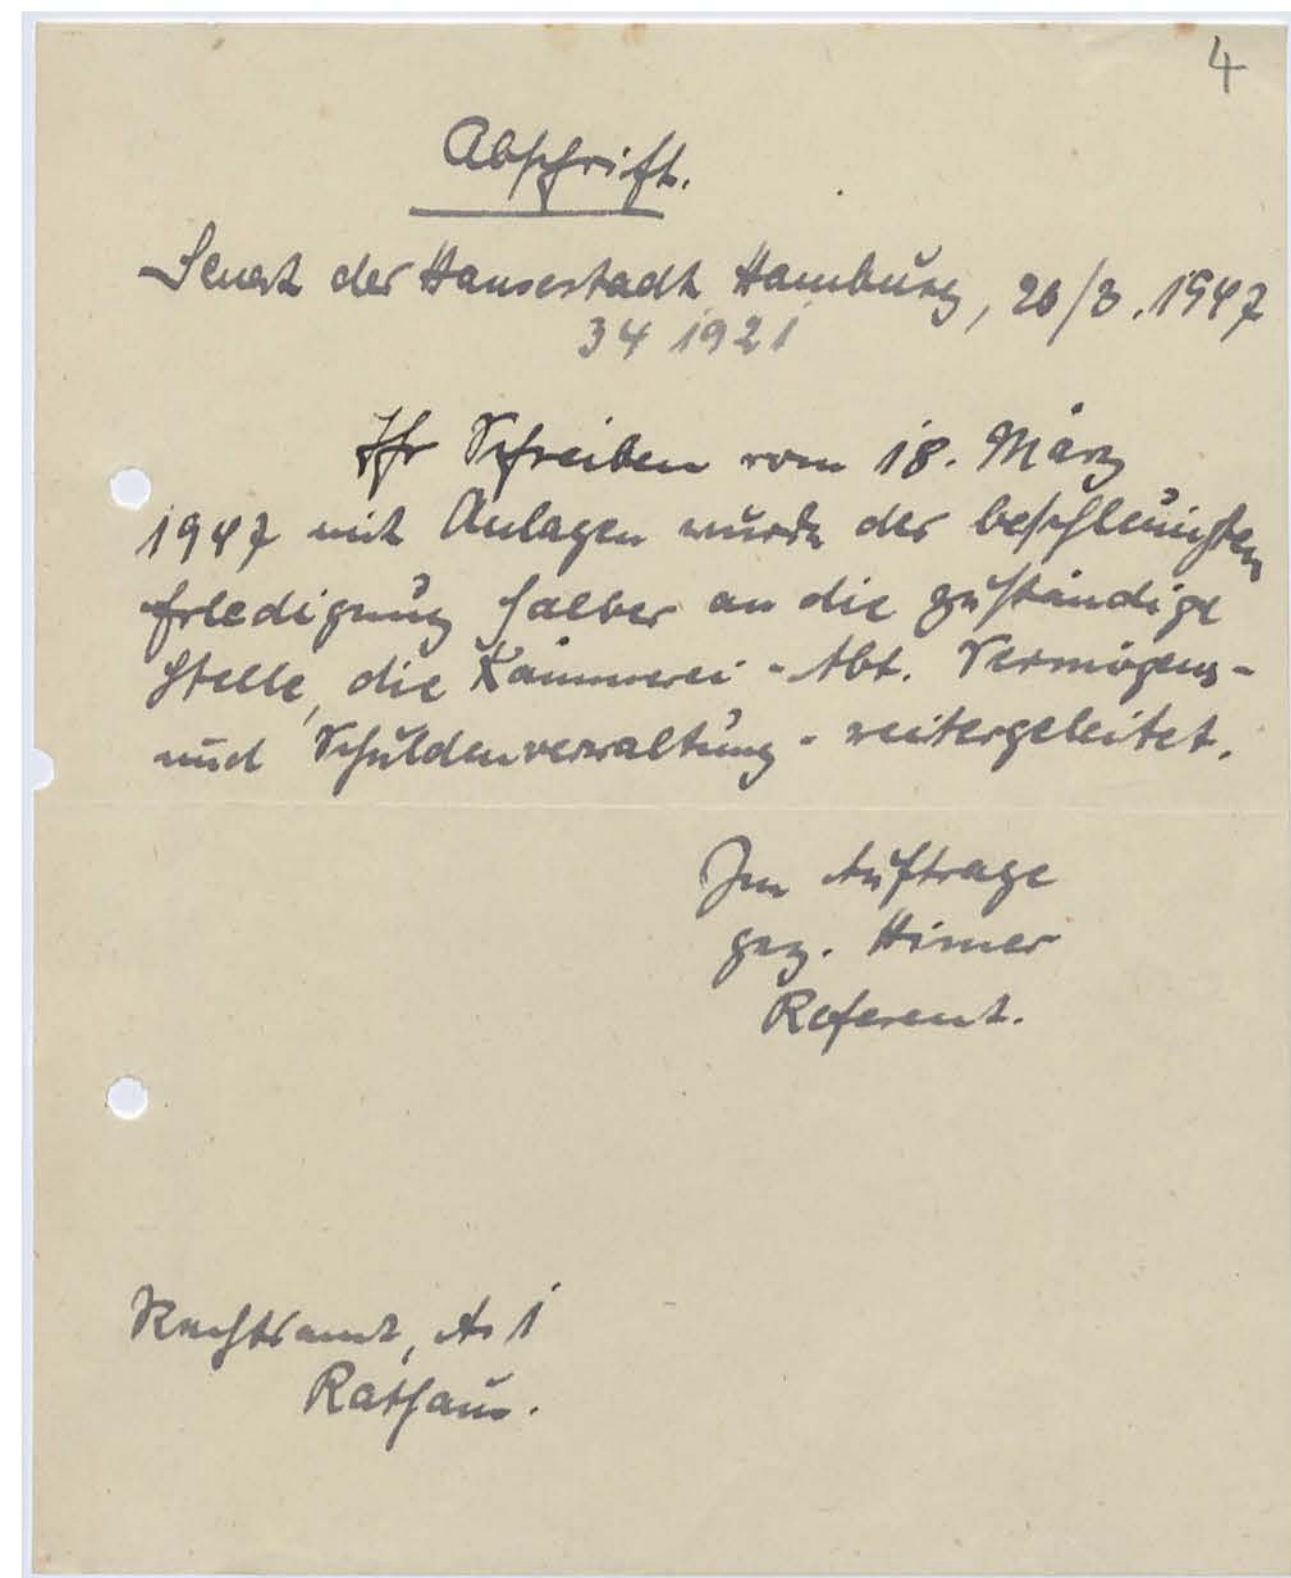 4
Abschrift.
Senat der Hansestadt Hamburg, 26/3. 1947
34 1921
Ihr Schreiben vom 18. März
1947 mit Anlagen wurde der beschleunigten
Erledigung halber an die zuständige
Stelle, die Kämmerei - Abt. Vermögens-
und Schuldenverwaltung - weitergeleitet.
Im Auftrage
gez. Himer
Referent.
Rechtsamt, A 1
Rathaus.